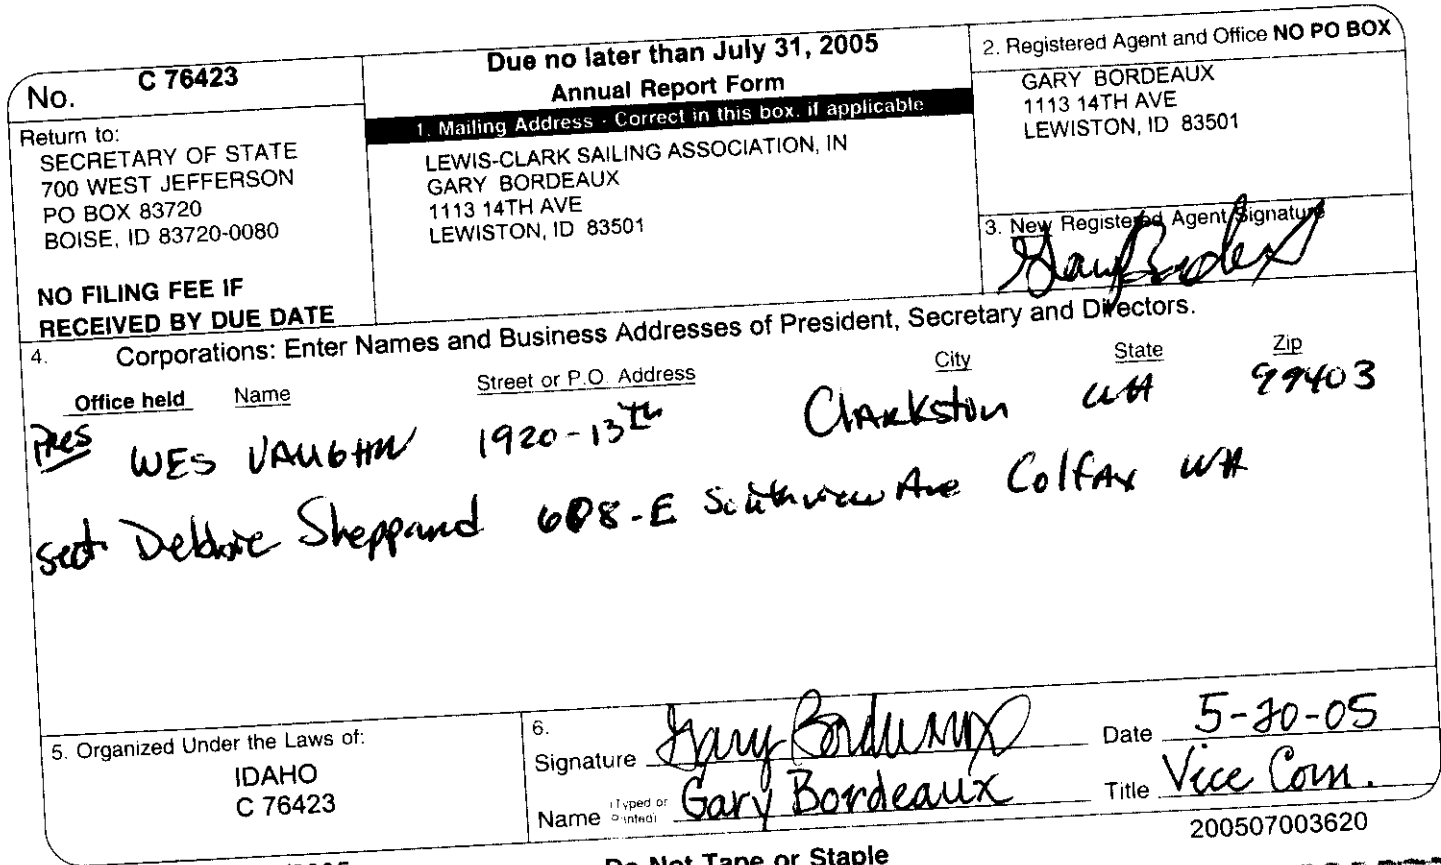 No. C 76423
Return to:
SECRETARY OF STATE
700 WEST JEFFERSON
PO BOX 83720
BOISE, ID 83720-0080
NO FILING FEE IF
RECEIVED BY DUE DATE
Due no later than July 31, 2005
Annual Report Form
1. Mailing Address - Correct in this box, if applicable
LEWIS-CLARK SAILING ASSOCIATION, IN
GARY BORDEAUX
1113 14TH AVE
LEWISTON, ID 83501
2. Registered Agent and Office NO PO BOX
GARY BORDEAUX
1113 14TH AVE
LEWISTON, ID 83501
3. New Registered Agent Signature
4. Corporations: Enter Names and Business Addresses of President, Secretary and Directors.
Office held Name Street or P.O. Address City State Zip
Pres WES VAUGHN 1920-13th Clarkston WA 99403
Sect. Debbie Sheppard 608-E Southview Ave Colfax WA
5. Organized Under the Laws of:
IDAHO
C 76423
6.
Signature Gary Bordeaux Date 5-20-05
Name (Typed or Printed) Gary Bordeaux Title Vice Com.
200507003620
Do Not Tape or Staple